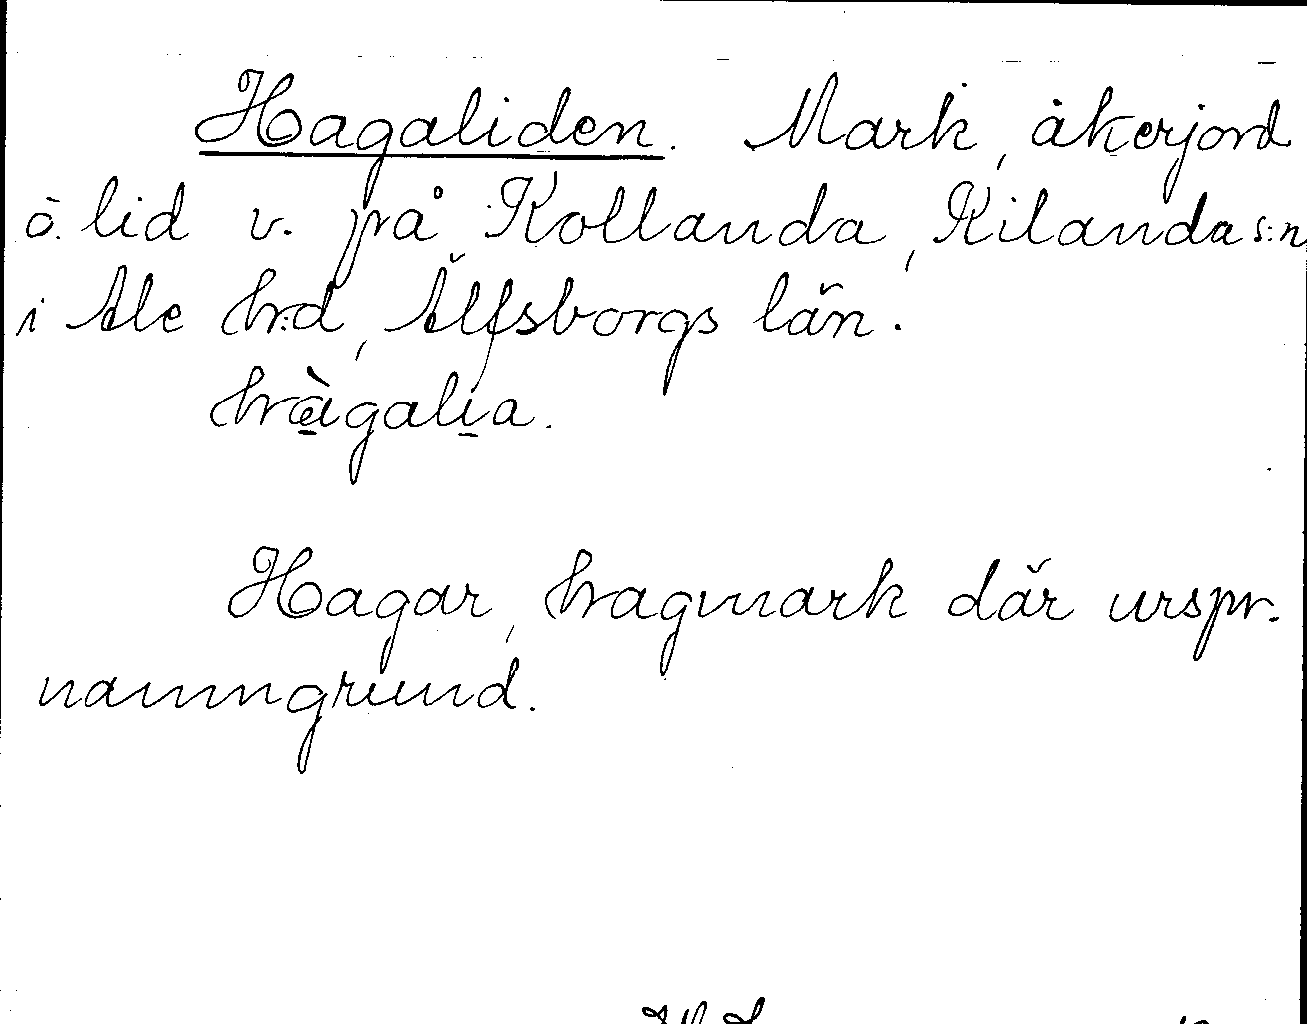 Hagaliden. Mark, åkerjord
o. lid v. på Kollanda, Kilanda s:n
i Ale h:d, Älfsborgs län.
hàgalia.
Hagar, hagmark där urspr.
namngrund.